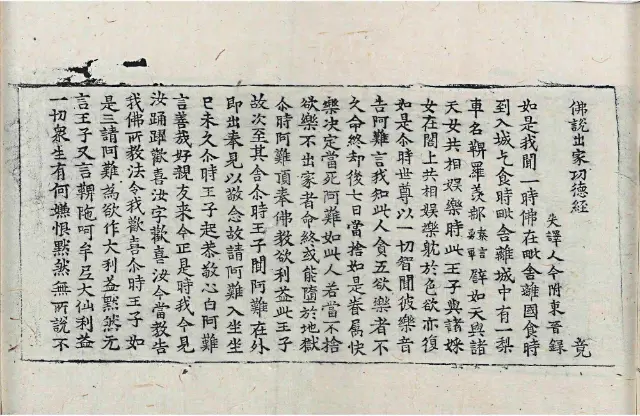 佛說出家功德經 竟
失譯人今附東晉錄
如是我聞一時佛在毗舍離國食時
到入城乞食時毗舍離城中有一梨
車名鞞羅羡那秦言勇軍譬如天與諸
天女共相娛樂時此王子與諸婇
女在閣上共相娛樂躭於色欲亦復
如是尒時世尊以一切智聞彼樂音
告阿難言我知此人貪五欲樂者不
久命終却後七日當捨如是眷屬快
樂決定當死阿難如此人若當不捨
欲樂不出家者命終或能墮於地獄
尒時阿難頂奉佛教欲利益此王子
故次至其舍尒時王子聞阿難在外
即出奉見以敬念故請阿難入坐坐
已未久尒時王子起恭敬心白阿難
言善哉好親友来今正是時我今見
汝踊躍歡喜汝字歡喜汝今當教告
我佛所教法令我歡喜尒時王子如
是三請阿難為欲作大利益默然无
言王子又言鞞陁呵牟尼大仙利益
一切衆生有何嫌恨默然無所說不